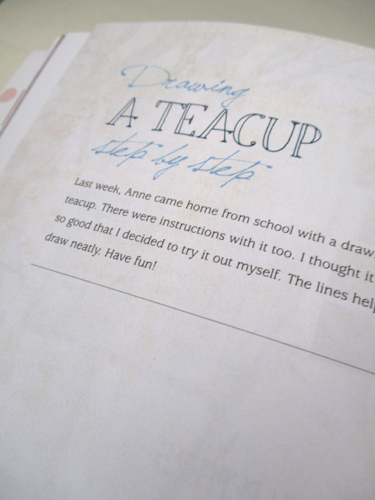 Drawing
A TEACUP
step by step
Last week, Anne came home from school with a draw
teacup. There were instructions with it too. I thought it
so good that I decided to try it out myself. The lines help
draw neatly. Have fun!